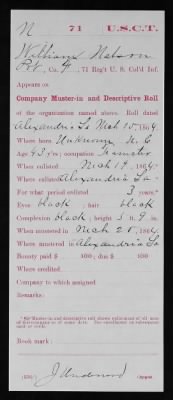 N 71 U.S.C.T.
William Nelson
Pvt, Co. F, 71 Reg't U. S. Col'd Inf.
Appears on
Company Muster-in and Descriptive Roll
of the organization named above. Roll dated
Alexandria La Mch 15, 1864.
Where born Unknown N. C.
Age 43 y'rs; occupation
When enlisted Mch 14, 1864.
Where enlisted Alexandria La
For what period enlisted 3 years.*
Eyes black; hair black
Complexion black; height 5 ft. 9 in.
When mustered in Mch 28, 1864.
Where mustered in Alexandria La
Bounty paid $ 100; due $ 100
Where credited
Company to which assigned
Remarks:
Book mark:
J Underwood
(339) Copyist.